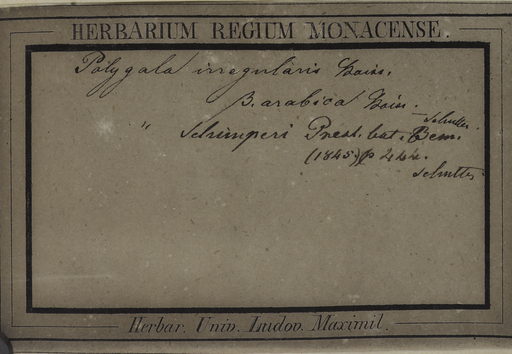 HERBARIUM REGIUM MONACENSE.
Polygala irregularis Boiss.
β. arabica Boiss.
" Schimperi Presl. bot. Bem.
(1845) p 444.
Herbar. Univ. Ludov. Maximil.